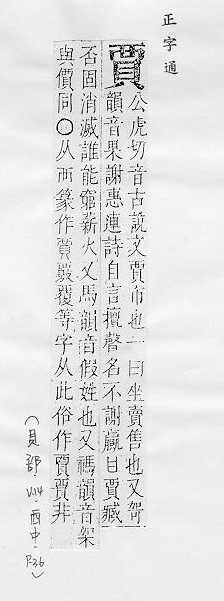 正字通
賈 公虎切音古說文賈市也一曰坐賣售也又哿
韻音果謝惠連詩自言擅聲名不謝贏曰賈臧
否固消滅誰能窮薪火又馬韻音假姓也又禡韻音架
與價同○从襾篆作賈覈覆等字从此俗作賈賈非
(貝部 V14.酉中.P.36)